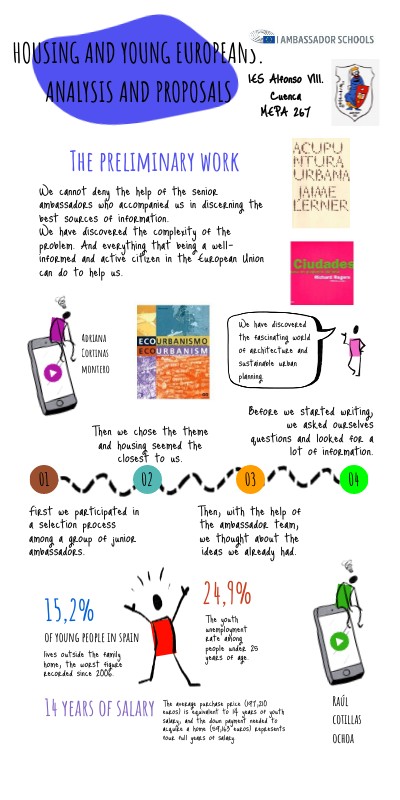 AMBASSADOR SCHOOLS
HOUSING AND YOUNG EUROPEANS.
ANALYSIS AND PROPOSALS
IES Alfonso VIII.
Cuenca
MEPA 267
THE PRELIMINARY WORK
We cannot deny the help of the senior
ambassadors who accompanied us in discerning the
best sources of information.
We have discovered the complexity of the
problem. And everything that being a well-
informed and active citizen in the European Union
can do to help us.
ACUPU
NTURA
URBANA
JAIME
LERNER
Ciudades
Richard Rogers
ADRIANA
CORTINAS
MONTERO
ECOURBANISMO
ECOURBANISM
We have discovered
the fascinating world
of architecture and
sustainable urban
planning.
Before we started writing,
we asked ourselves
questions and looked for a
lot of information.
Then we chose the theme
and housing seemed the
closest to us.
01
02
03
04
First we participated in
a selection process
among a group of junior
ambassadors.
Then, with the help of
the ambassador team,
we thought about the
ideas we already had.
15,2%
OF YOUNG PEOPLE IN SPAIN
lives outside the family
home, the worst figure
recorded since 2006.
24,9%
The youth
unemployment
rate among
people under 25
years of age.
14 YEARS OF SALARY
The average purchase price (197,210
euros) is equivalent to 14 years of youth
salary, and the down payment needed to
acquire a home (59,163 euros) represents
four full years of salary
RAÚL
COTILLAS
OCHOA